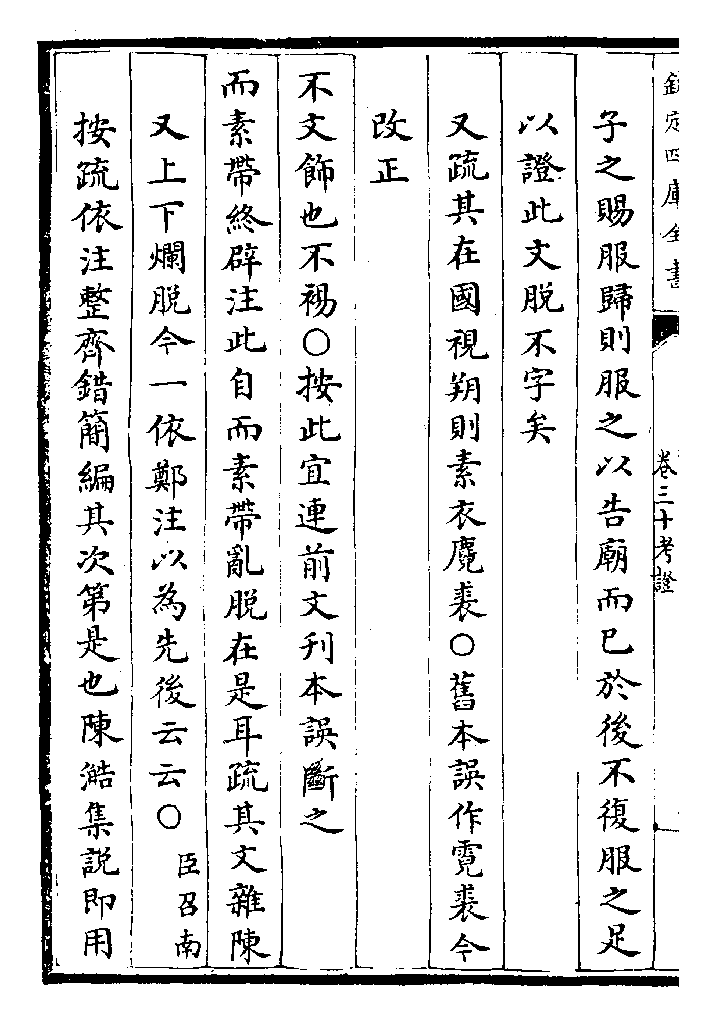 欽定四庫全書
卷三十考證
子之賜服歸則服之以告廟而已於後不復服之足
以證此文脱不字矣
又疏其在國視朔則素衣麑裘〇舊本誤作霓裘今
改正
不文飾也不裼〇按此宜連前文刊本誤斷之
而素帶終辟注此自而素帶亂脱在是耳疏其文雜陳
又上下爛脱今一依鄭注以為先後云云〇臣召南
按疏依注整齊錯簡編其次第是也陳澔集説即用